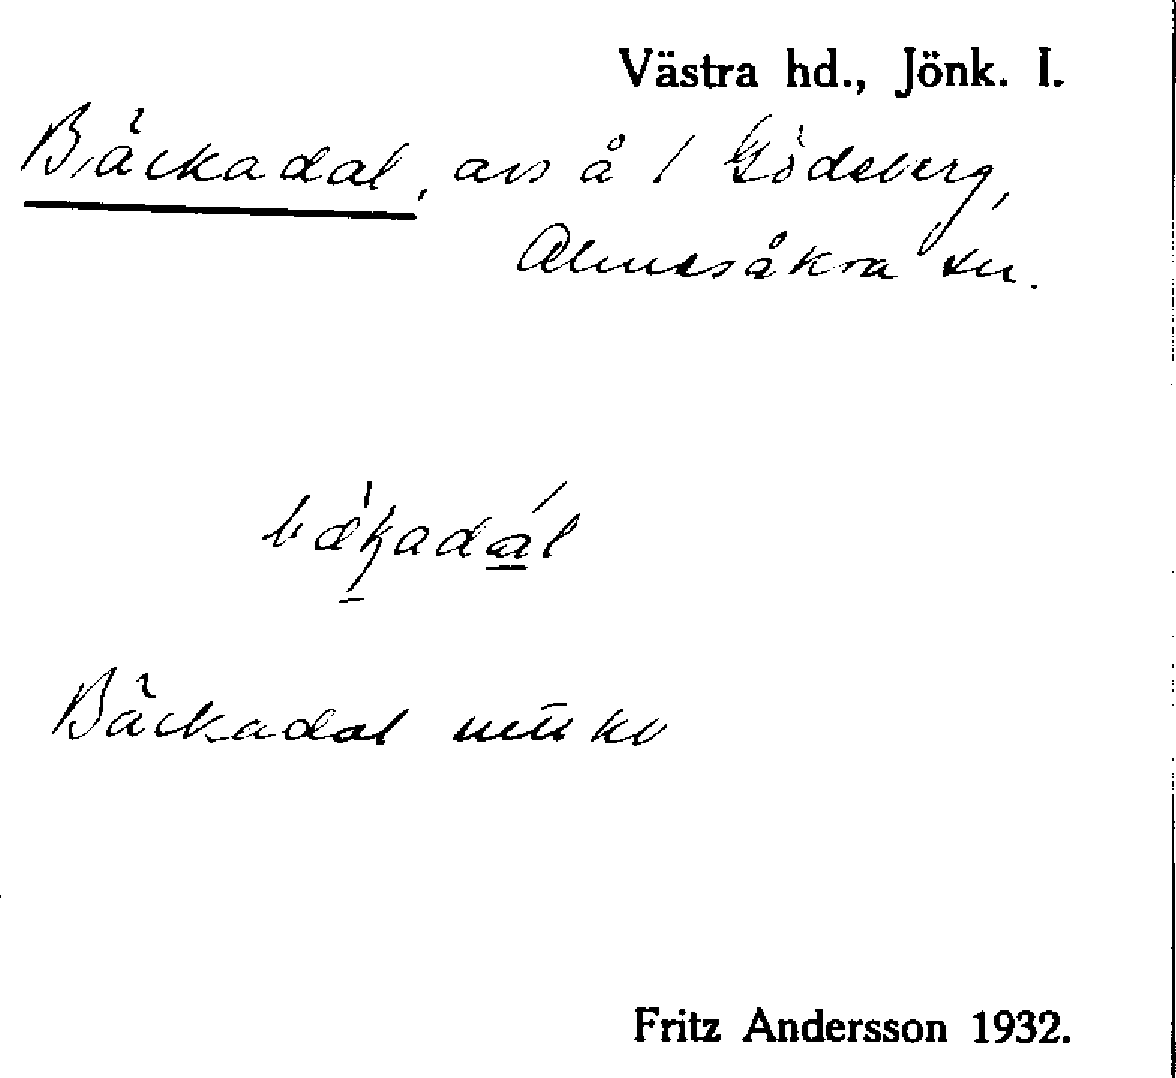 Västra hd., Jönk. l.
Bäckadal, avs å 1 Gödeberg,
Almesåkra sn.
bækadál
Bäckadal
Fritz Andersson 1932.